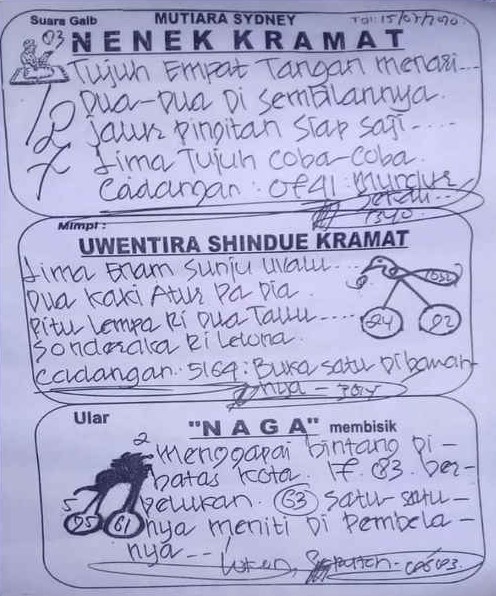 Suara Gaib MUTIARA SYDNEY Tgl: 15/07/2020.
03 NENEK KRAMAT
Tujuh Empat Tangan menari...
Dua-Dua Di sembilannya.
jalur pingitan siap saji-....
Lima Tujuh coba-coba.
Cadangan: 0741: Mundur
sekali...
Mimpi:
UWENTIRA SHINDUE KRAMAT
Lima Enam sunju uvalu...
Dua kaki Atur Pa Dia.
Pitu lempa Ri Dua Talu....
24 02
Sonderaka Ri Lelona.
Cadangan. 5164: Buka satu Dibawah
nya -
Ular "NAGA" membisik
2
menggapai bintang Di-
batas kota. 17. 83. ber-
5 pelukan. 63 satu-satu-
95 61 nya meniti Di Pembela-
nya--!